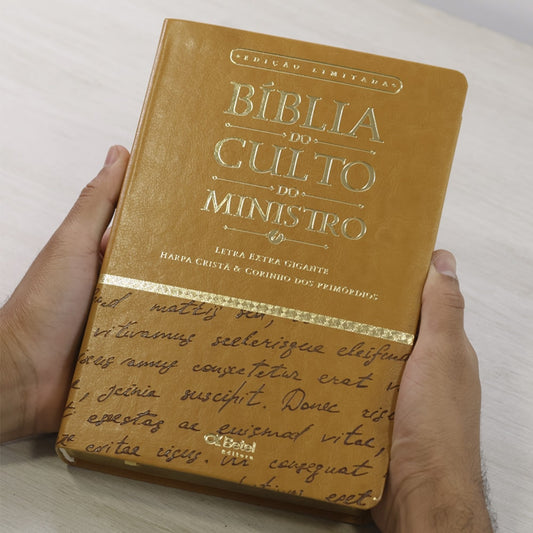 EDIÇÃO LIMITADA
BÍBLIA
DO
CULTO
DO
MINISTRO
LETRA EXTRA GIGANTE
HARPA CRISTÃ & CORINHO DOS PRIMÓRDIOS
mattis
vitivamus scelerisque eleifend
risus amus consectetur erat v
, lcinia suscipit. Donec
egestas ac euismod vitae,
vitae risus. consequat
Betel
Editora
eget